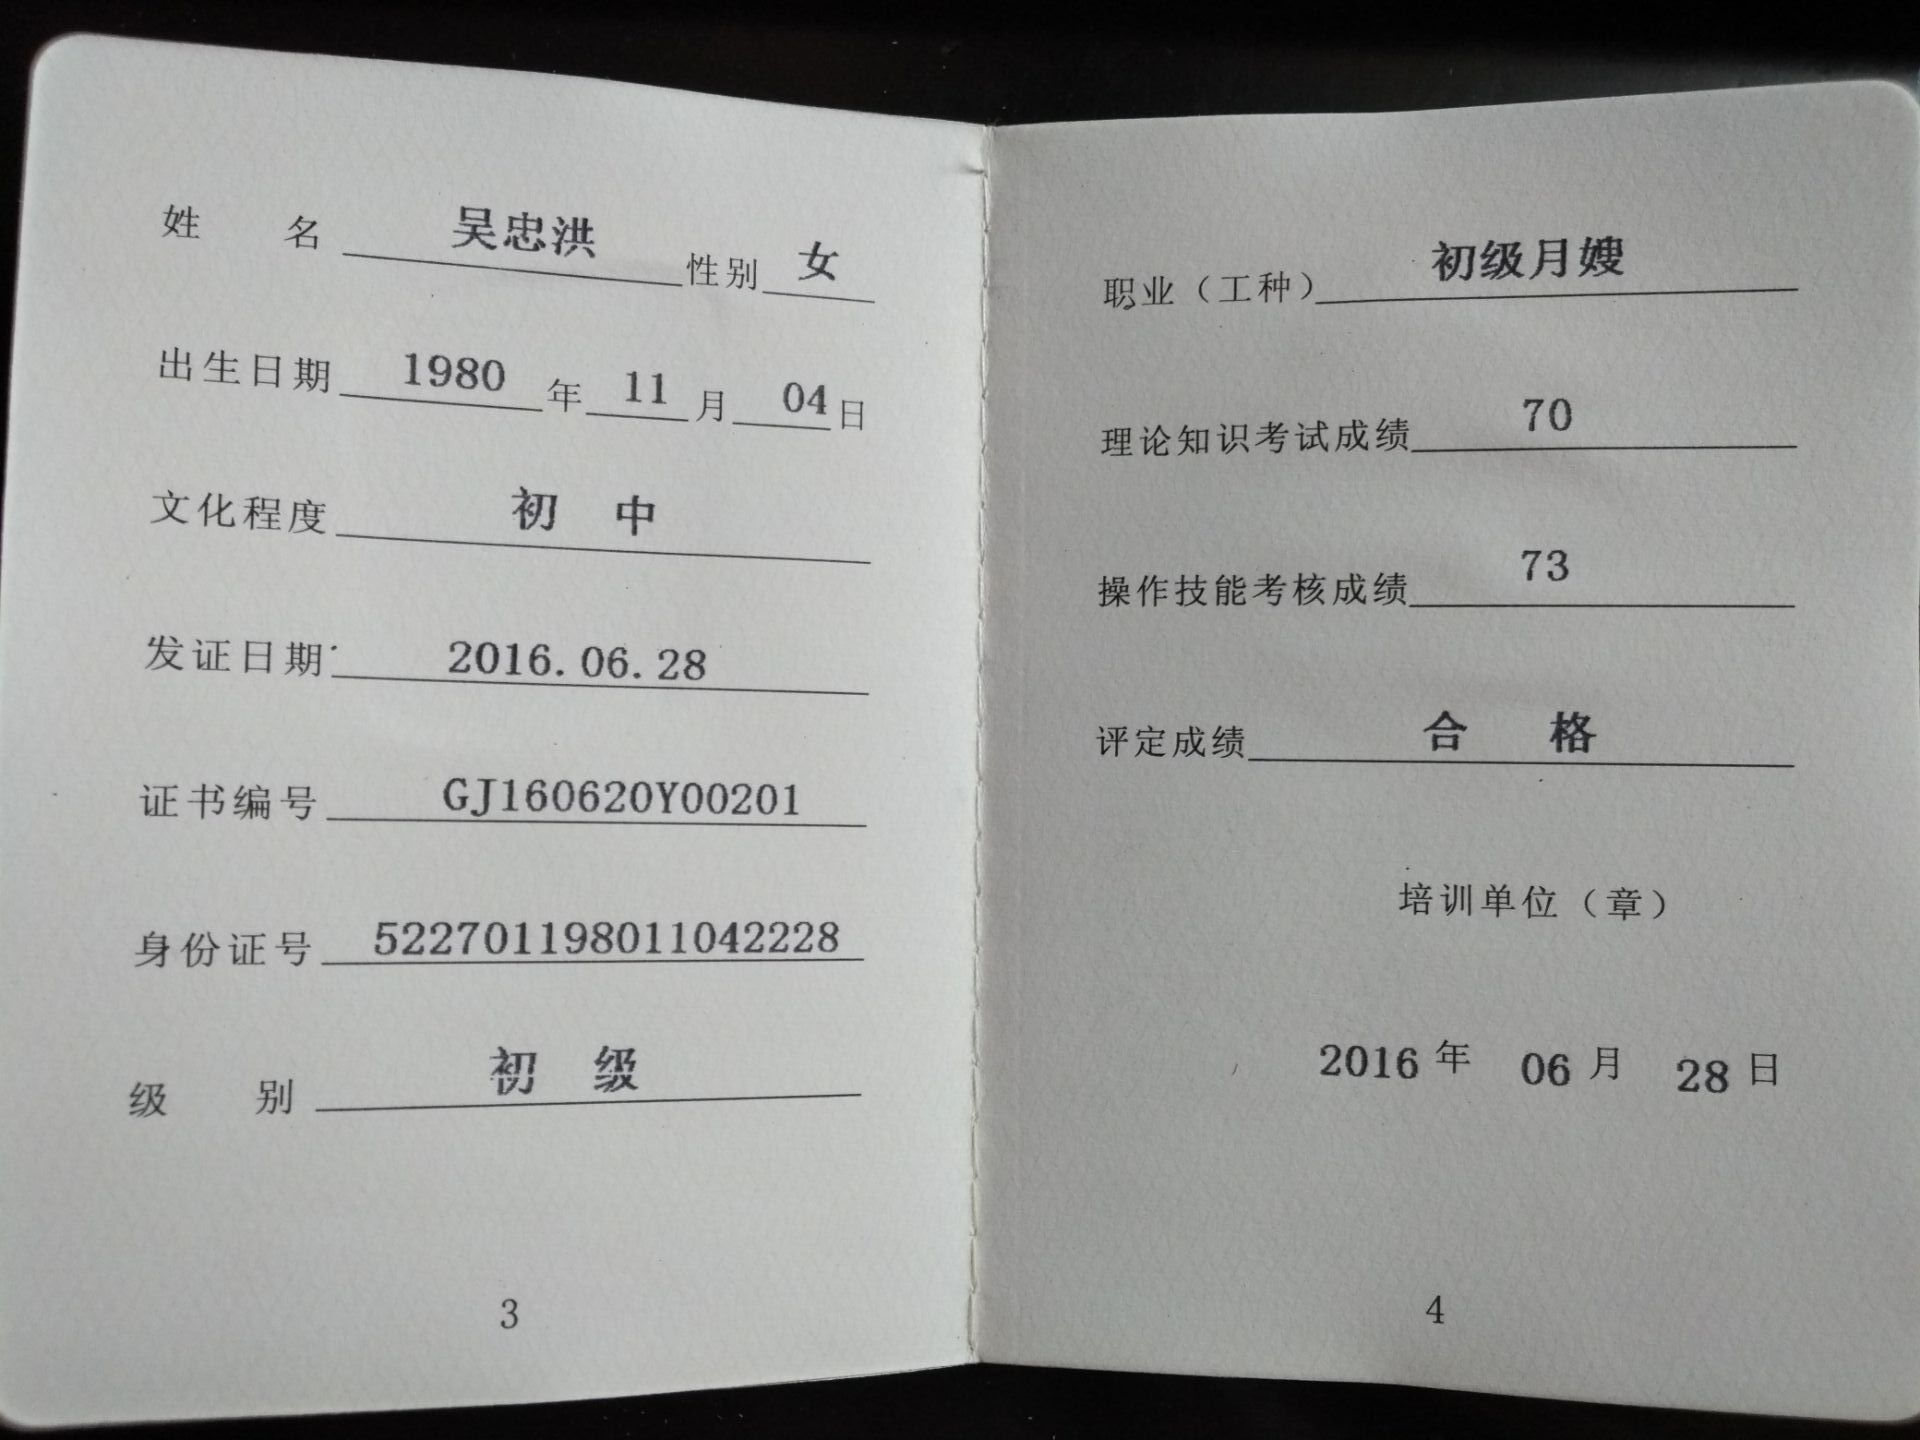 姓 名 吴忠洪 性别 女
出生日期 1980 年 11 月 04 日
文化程度 初 中
发证日期 2016.06.28
证书编号 GJ160620Y00201
身份证号 522701198011042228
级 别 初 级
3
职业（工种） 初级月嫂
理论知识考试成绩 70
操作技能考核成绩 73
评定成绩 合 格
培训单位（章）
2016 年 06 月 28 日
4